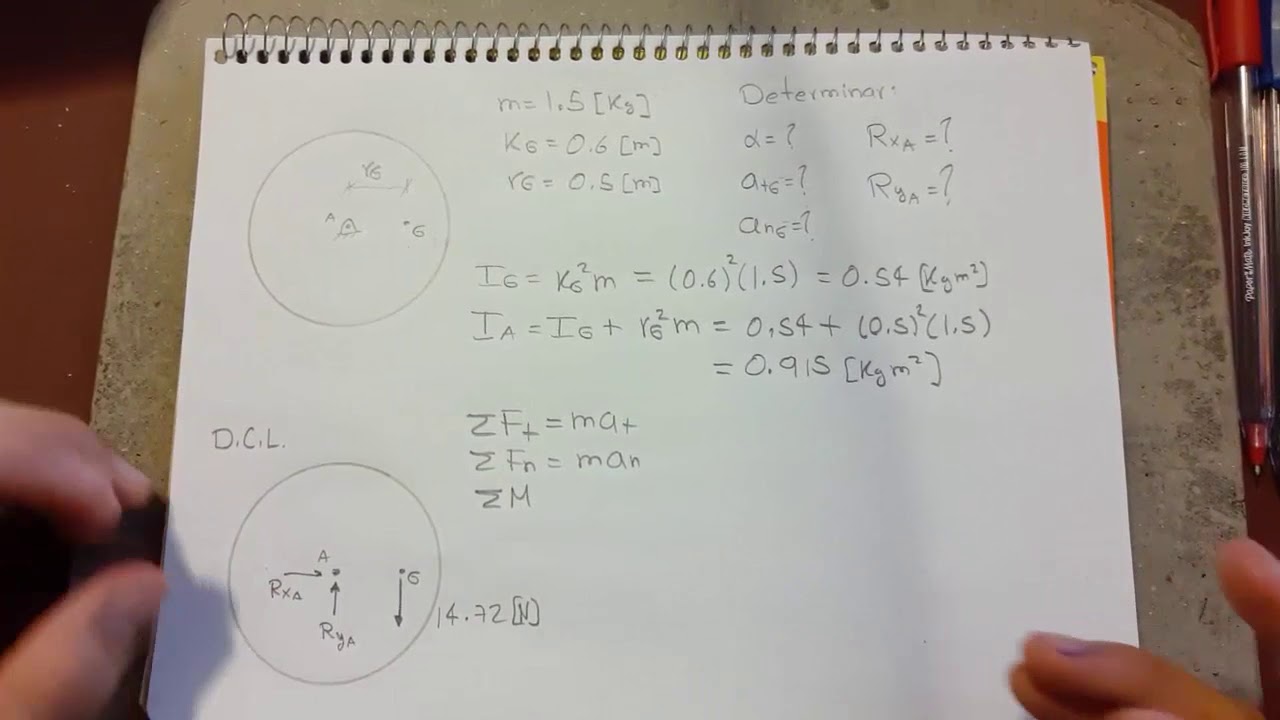 m = 1.5 [Kg]
K_G = 0.6 [m]
r_G = 0.5 [m]
Determinar:
α = ?
a_tG = ?
a_nG = ?
Rx_A = ?
Ry_A = ?
r_G
A
G
I_G = K_G² m = (0.6)² (1.5) = 0.54 [Kg m²]
I_A = I_G + r_G² m = 0,54 + (0.5)² (1.5)
= 0.915 [Kg m²]
D.C.L.
ΣF_t = ma_t
ΣF_n = ma_n
ΣM
A
G
Rx_A
Ry_A
14.72 [N]
Paper:Mate InkJoy